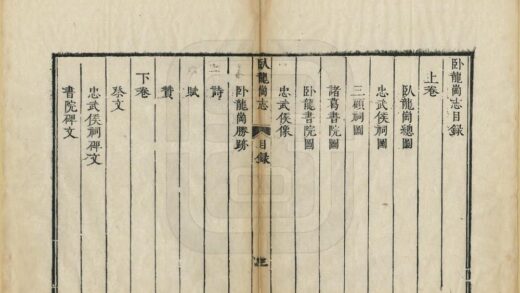 卧龍崗志目録
上卷
卧龍崗總圖
忠武侯祠圖
三顧祠圖
諸葛書院圖
卧龍書院圖
忠武侯像
卧龍崗志 目録
卧龍崗勝跡
詩
賦
贊
下卷
祭文
忠武侯祠碑文
書院碑文